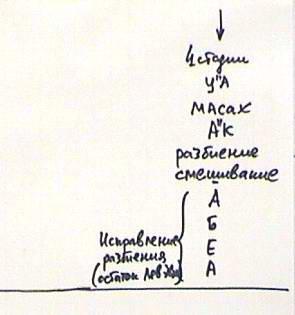 4 стадии
Ц"А
МАсах
А"К
разбиение
смешивание
А
Б
Е
А
Исправление
разбиения
(остаток